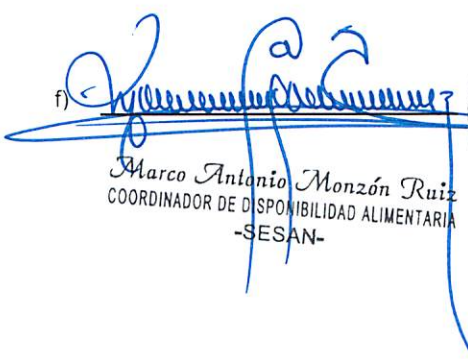 f)
Marco Antonio Monzón Ruiz
COORDINADOR DE DISPONIBILIDAD ALIMENTARIA
-SESAN-